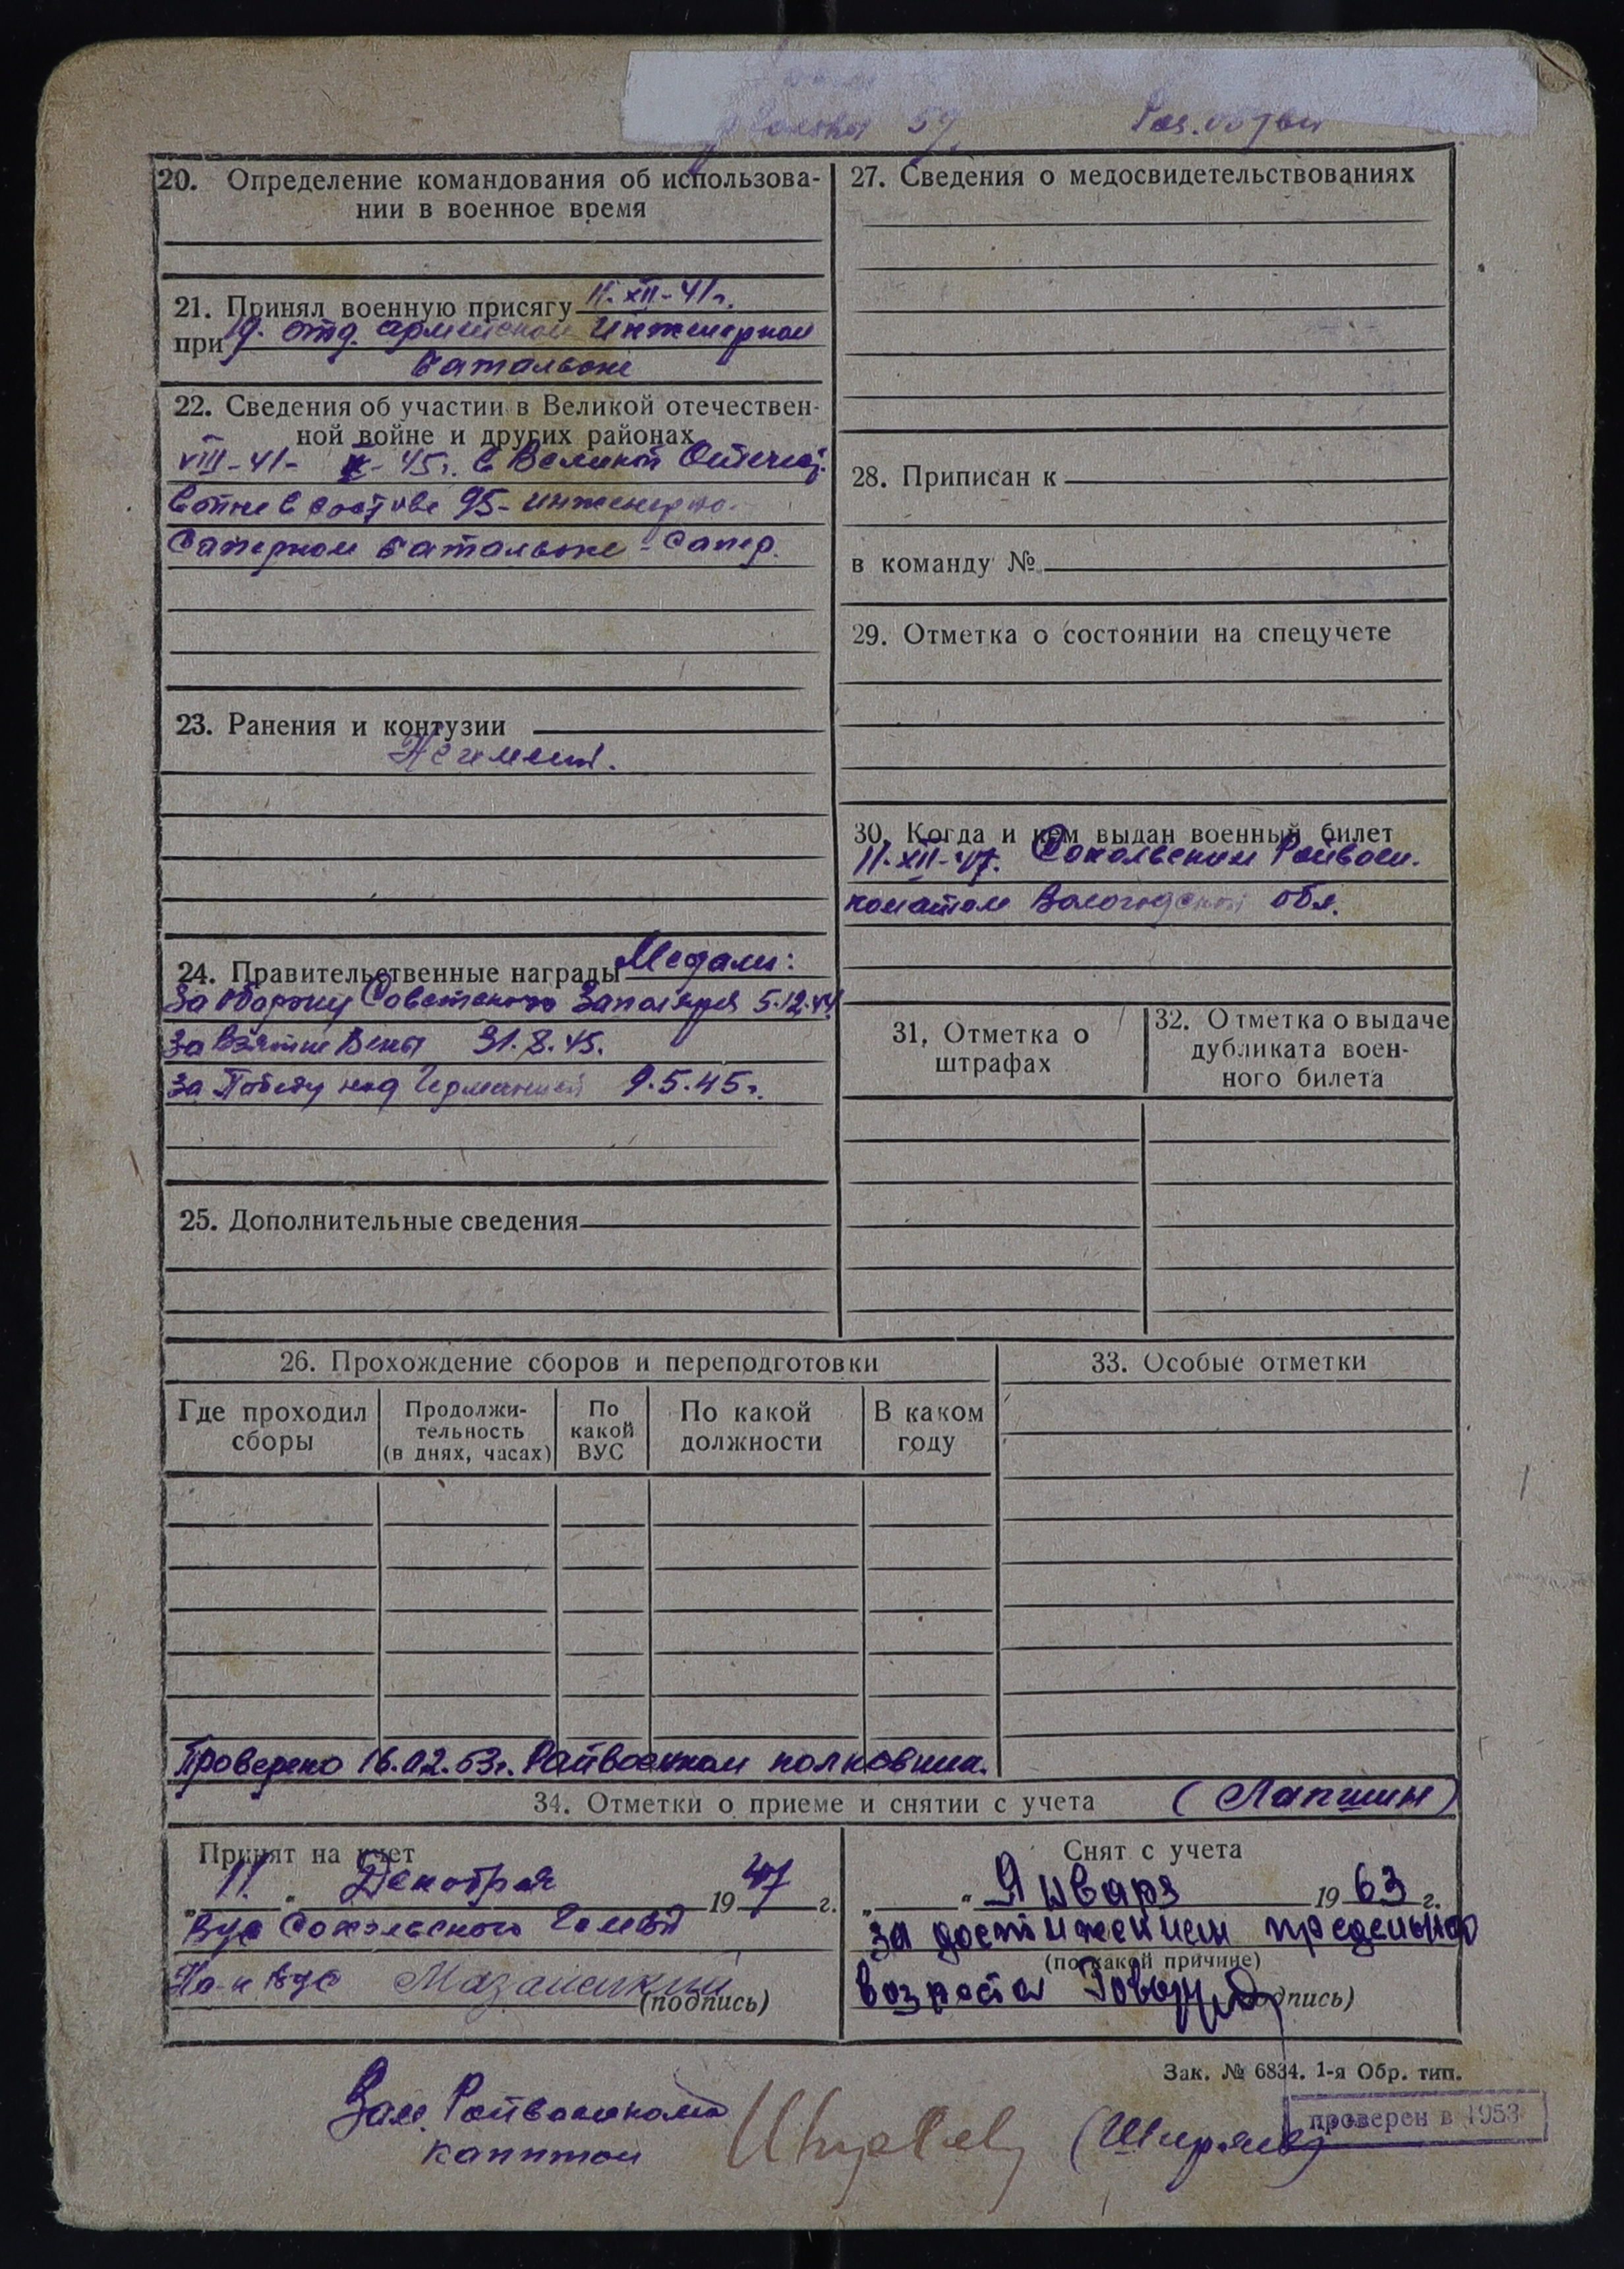 59
20. Определение командования об использова-
нии в военное время
21. Принял военную присягу 11.XII-41г.
при 19. отд. армейском Инженерном
батальоне
22. Сведения об участии в Великой отечествен-
ной войне и других районах
VIII-41- -45г. в Великой Отечеств.
войне в составе 95- инженерно.
Саперном батальоне - сапер.
23. Ранения и контузии
Не имеет.
24. Правительственные награды Медали:
За оборону Советского Заполярья 5.12.44
За взятие Вены 31.8.45.
За Победу над Германией 9.5.45г.
25. Дополнительные сведения
27. Сведения о медосвидетельствованиях
28. Приписан к
в команду №
29. Отметка о состоянии на спецучете
30. Когда и кем выдан военный билет
11-XII-47. Сокольским Райвоен.
коматом Вологодской обл.
31. Отметка о
штрафах
32. Отметка о выдаче
дубликата воен-
ного билета
26. Прохождение сборов и переподготовки
Где проходил
сборы
Продолжи-
тельность
(в днях, часах)
По
какой
ВУС
По какой
должности
В каком
году
33. Особые отметки
Проверено 16.02.53г. Райвоенком полковник.
34. Отметки о приеме и снятии с учета (Лапшин)
Принят на учет
„11“ Декабря 1947 г.
Вус Сокольского
На-к Вус
(подпись)
Снят с учета
„ “ Января 1963 г.
за достижением предельного
(по какой причине)
возраста
(подпись)
Зак. № 6834. 1-я Обр. тип.
проверен в 1953
Зам. Райвоенкома
капитан (Ширяев)